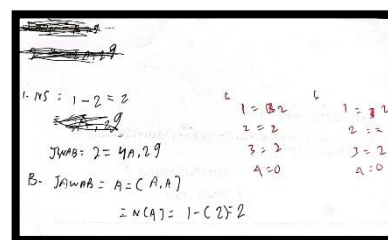 1. NS = 1 - 2 = 2
JWAB = 2 = 4A, 29
B. JAWAB = A = (A, A]
= N(A) = 1 - (2) = 2
1 = B2
2 = 2
3 = 2
4 = 0
1 = 32
2 = 2
3 = 2
4 = 0